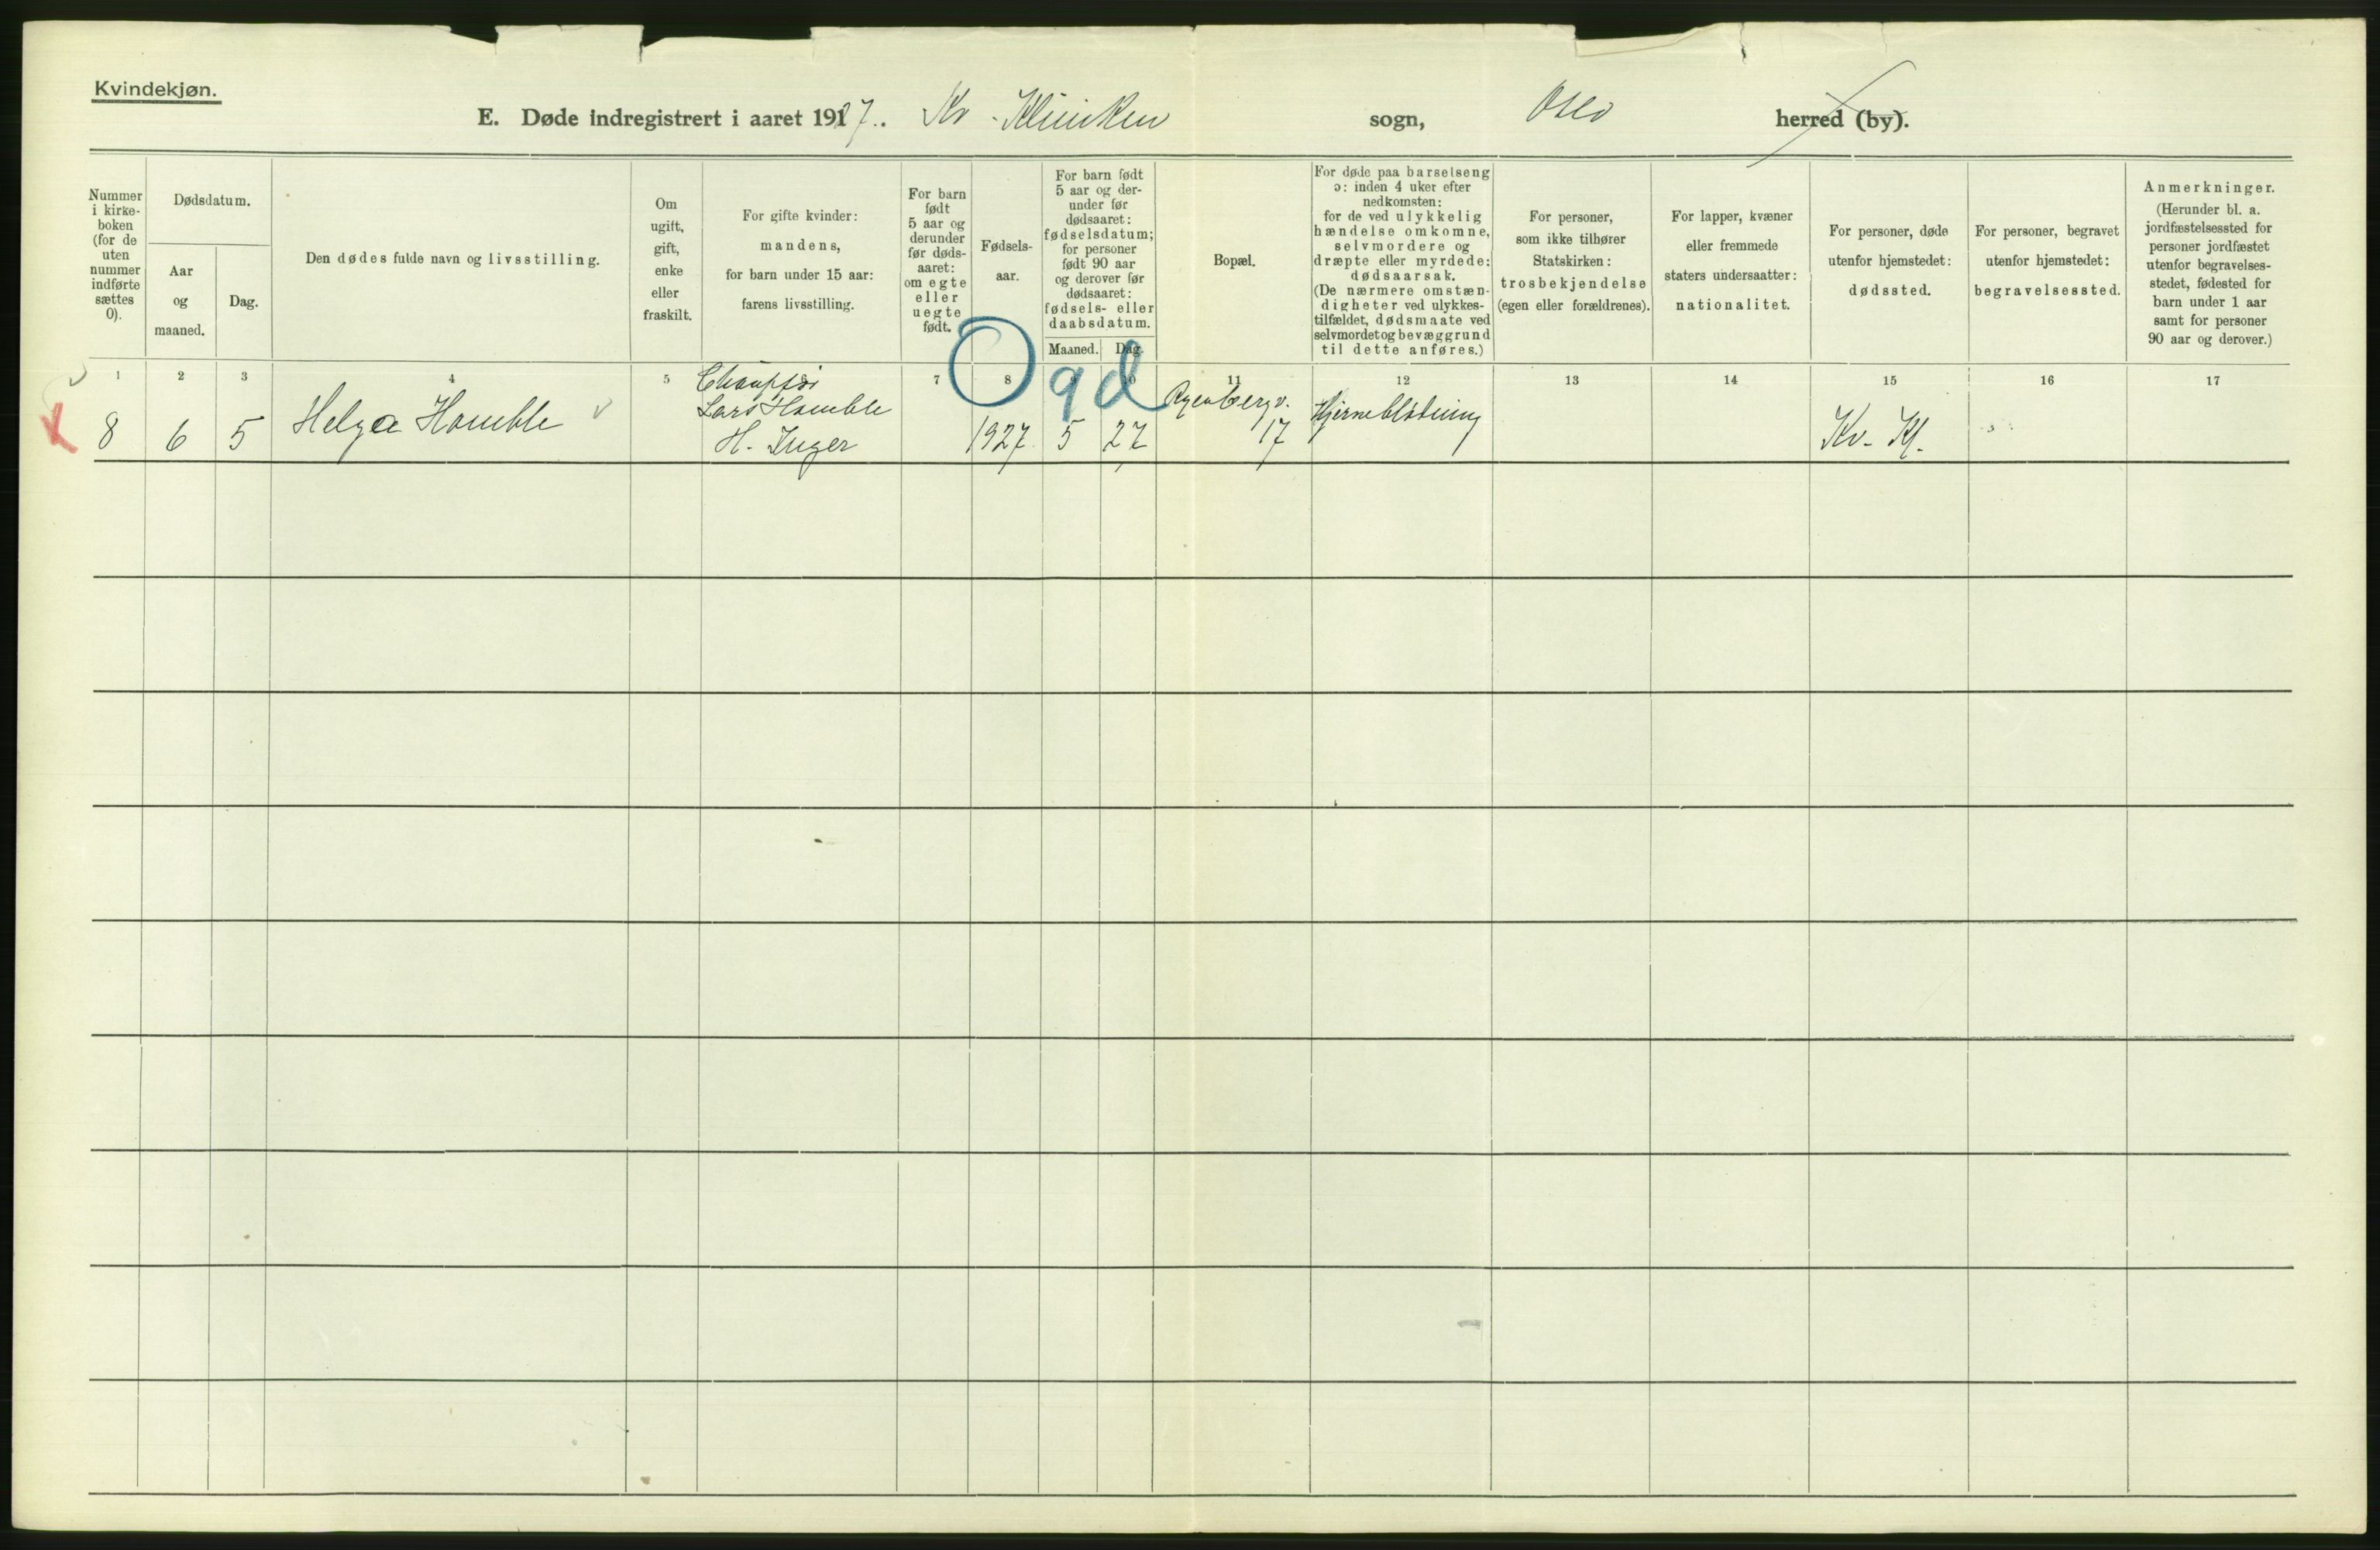 Kvindekjøn.
E. Døde indregistrert i aaret 1927. Kv. Kliniken sogn, Oslo herred (by).
Nummer
i kirke-
boken
(for de
uten
nummer
indførte
sættes
0).
Dødsdatum.
Aar
og
maaned.
Dag.
Den dødes fulde navn og livsstilling.
Om
ugift,
gift,
enke
eller
fraskilt.
For gifte kvinder:
mandens,
for barn under 15 aar:
farens livsstilling.
For barn
født
5 aar og
derunder
før døds-
aaret:
om egte
eller
uegte
født.
Fødsels-
aar.
For barn født
5 aar og der-
under før
dødsaaret:
fødselsdatum;
for personer
født 90 aar
og derover før
dødsaaret:
fødsels- eller
daabsdatum.
Maaned. Dag.
Bopæl.
For døde paa barselseng
ɔ: inden 4 uker efter
nedkomsten:
for de ved ulykkelig
hændelse omkomne,
selvmordere og
dræpte eller myrdede:
dødsaarsak.
(De nærmere omstæn-
digheter ved ulykkes-
tilfældet, dødsmaate ved
selvmordet og bevæggrund
til dette anføres.)
For personer,
som ikke tilhører
Statskirken:
trosbekjendelse
(egen eller forældrenes).
For lapper, kvæner
eller fremmede
staters undersaatter:
nationalitet.
For personer, døde
utenfor hjemstedet:
dødssted.
For personer, begravet
utenfor hjemstedet:
begravelsessted.
Anmerkninger.
(Herunder bl. a.
jordfæstelsessted for
personer jordfæstet
utenfor begravelses-
stedet, fødested for
barn under 1 aar
samt for personer
90 aar og derover.)
1 2 3 4 5 6 7 8 9 10 11 12 13 14 15 16 17
0 9 d
8 6 5 Helga Hamble
Chauffør
Lars Hamble
H. Inger
1927 5 27
Ryenbergv.
17
Hjerneblødning
Kv. Kl.